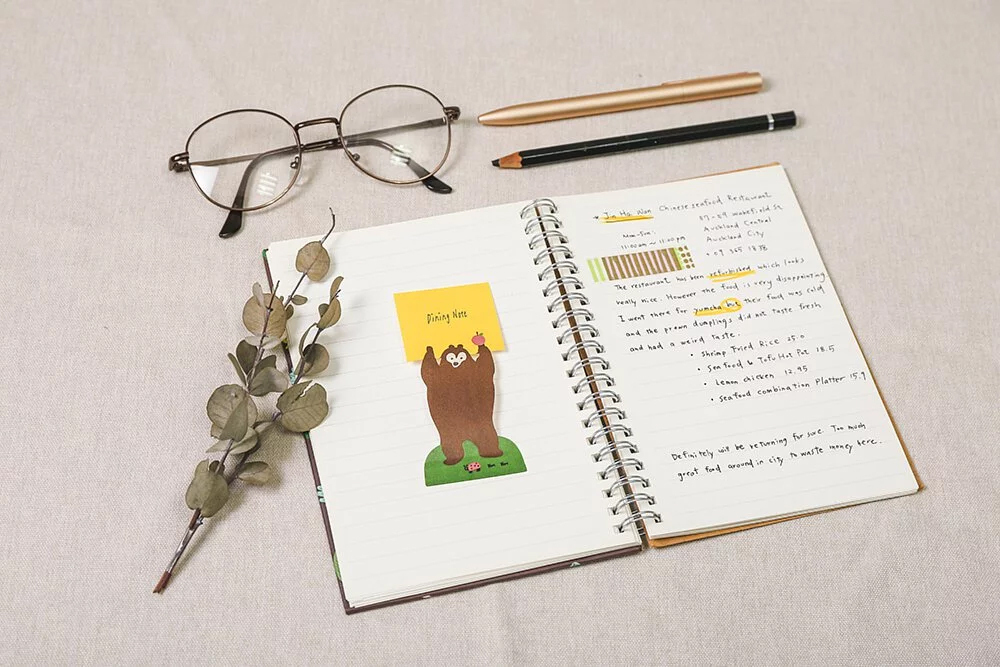 Dining Note
Jin Hai Wan Chinese seafood Restaurant
57-59 Wakefield St
Auckland Central
Auckland City
+09 365 1838
Mon-Fri:
11:00am ~ 11:00pm
The restaurant has been refurbished which looks
really nice. However the food is very disappointing
I went there for yumcha but their food was cold
and the prawn dumplings did not taste fresh
and had a weird taste.
• Shrimp Fried Rice 25.0
• Seafood & Tofu Hot Pot 18.5
• Lemon chicken 12.95
• Seafood combination Platter 15.9
Definitely will be returning for sure. Too much
great food around in city to waste money here..